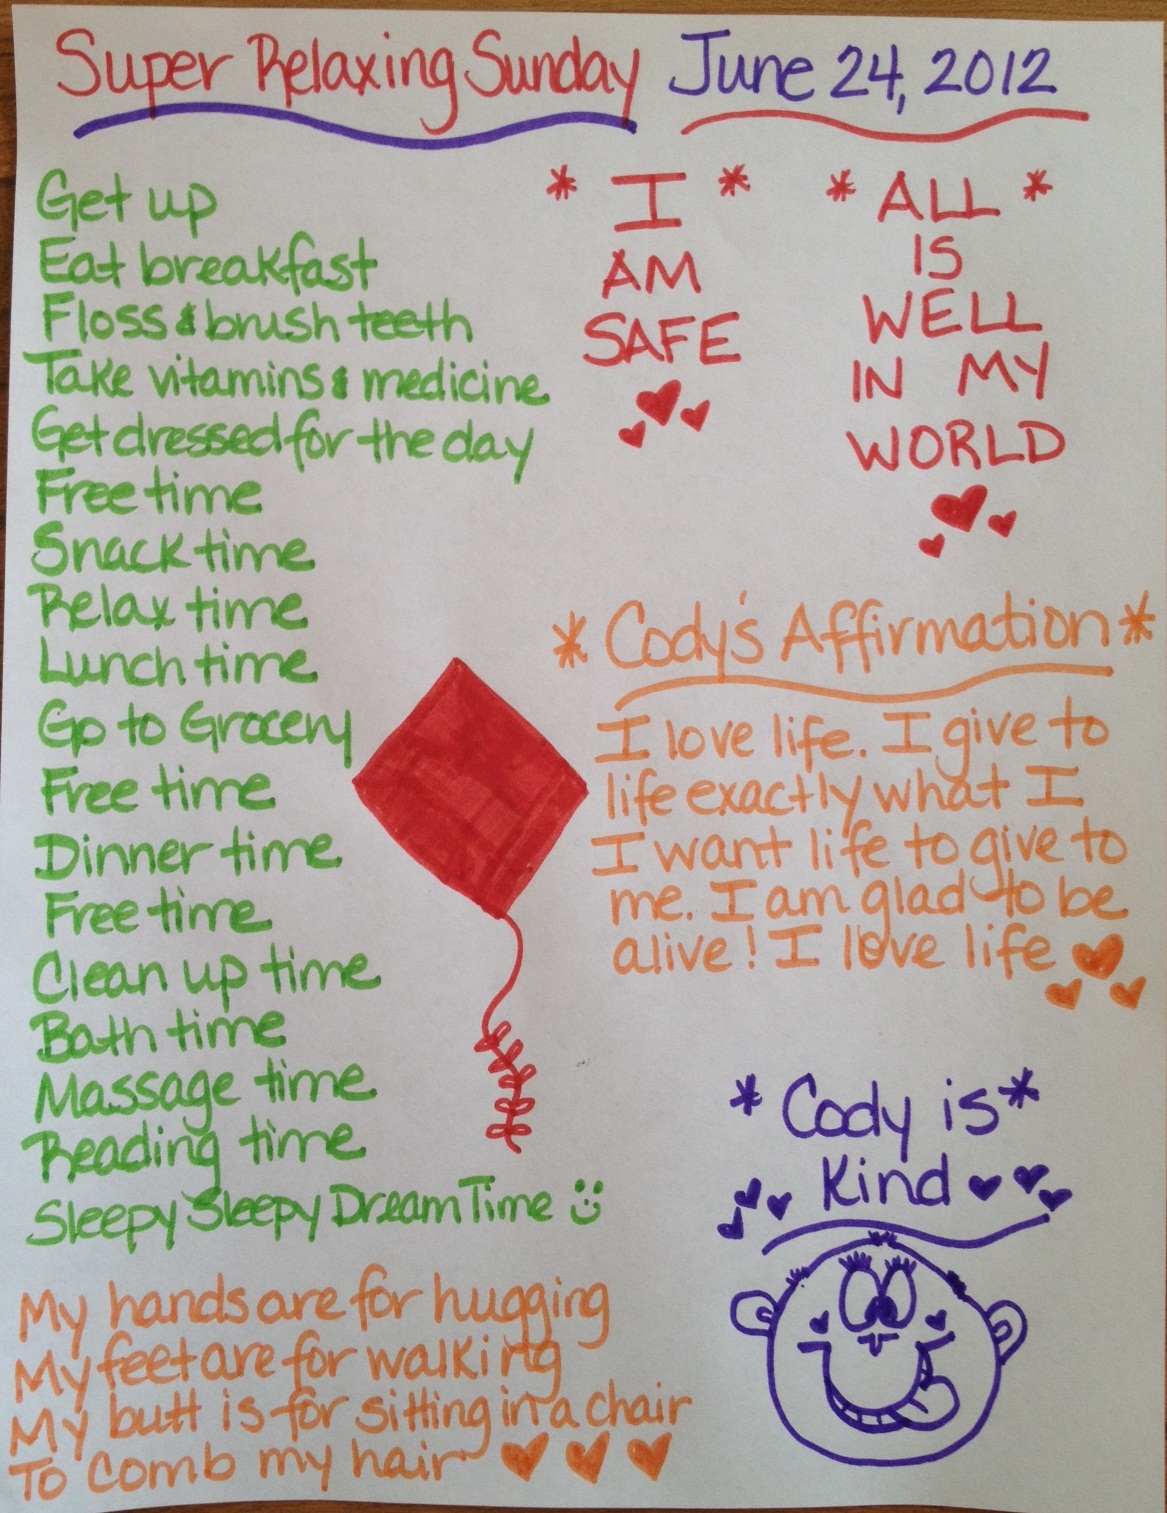 Super Relaxing Sunday June 24, 2012
Get up
Eat breakfast
Floss & brush teeth
Take vitamins & medicine
Get dressed for the day
Free time
Snack time
Relax time
Lunch time
Go to Grocery
Free time
Dinner time
Free time
Clean up time
Bath time
Massage time
Reading time
Sleepy Sleepy Dream Time
* I *
AM
SAFE
* ALL *
IS
WELL
IN MY
WORLD
* Cody's Affirmation *
I love life. I give to
life exactly what I
I want life to give to
me. I am glad to be
alive! I love life
* Cody is *
Kind
My hands are for hugging
My feet are for walking
My butt is for sitting in a chair
To comb my hair